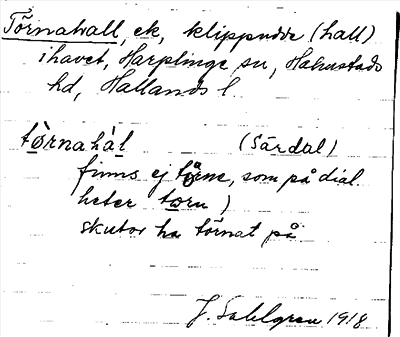 Törnahall, ek, klippudde (hall)
i havet, Harplinge sn, Halmstads
hd, Hallands l
tòrnahàl (Särdal)
finns ej törne, som på dial
heter torn)
skutor ha törnat på
J. Sahlgren 1918